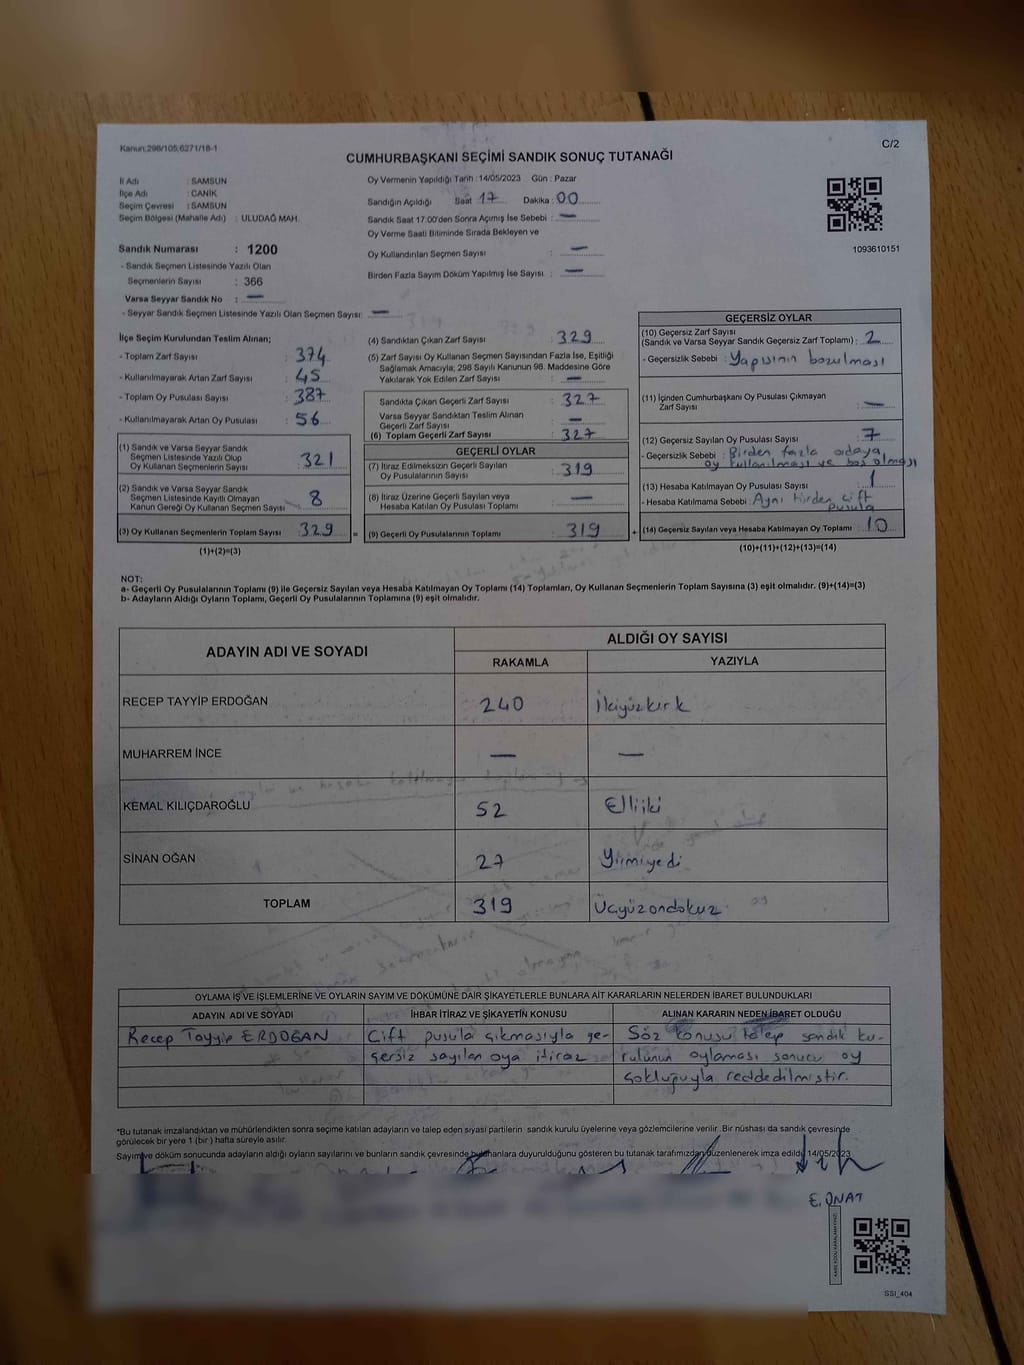 Kanun:298/105,6271/18-1
C/2
CUMHURBAŞKANI SEÇİMİ SANDIK SONUÇ TUTANAĞI
İl Adı : SAMSUN
İlçe Adı : CANİK
Seçim Çevresi : SAMSUN
Seçim Bölgesi (Mahalle Adı) : ULUDAĞ MAH.
Oy Vermenin Yapıldığı Tarih :14/05/2023 Gün : Pazar
Sandığın Açıldığı Saat 17 Dakika :00
Sandık Saat 17.00'den Sonra Açımış İse Sebebi : —
Oy Verme Saati Bitiminde Sırada Bekleyen ve
Oy Kullandırılan Seçmen Sayısı : —
Birden Fazla Sayım Döküm Yapılmış İse Sayısı : —
1093610151
Sandık Numarası : 1200
- Sandık Seçmen Listesinde Yazılı Olan
Seçmenlerin Sayısı : 366
Varsa Seyyar Sandık No : —
- Seyyar Sandık Seçmen Listesinde Yazılı Olan Seçmen Sayısı: —
İlçe Seçim Kurulundan Teslim Alınan;
- Toplam Zarf Sayısı : 374
- Kullanılmayarak Artan Zarf Sayısı : 45
- Toplam Oy Pusulası Sayısı : 387
- Kullanılmayarak Artan Oy Pusulası : 56
(1) Sandık ve Varsa Seyyar Sandık
Seçmen Listesinde Yazılı Olup
Oy Kullanan Seçmenlerin Sayısı : 321
(2) Sandık ve Varsa Seyyar Sandık
Seçmen Listesinde Kayıtlı Olmayan
Kanun Gereği Oy Kullanan Seçmen Sayısı : 8
(3) Oy Kullanan Seçmenlerin Toplam Sayısı : 329
(1)+(2)=(3)
(4) Sandıktan Çıkan Zarf Sayısı : 329
(5) Zarf Sayısı Oy Kullanan Seçmen Sayısından Fazla İse, Eşitliği
Sağlamak Amacıyla; 298 Sayılı Kanunun 98. Maddesine Göre
Yakılarak Yok Edilen Zarf Sayısı : —
Sandıkta Çıkan Geçerli Zarf Sayısı : 327
Varsa Seyyar Sandıktan Teslim Alınan
Geçerli Zarf Sayısı : —
(6) Toplam Geçerli Zarf Sayısı : 327
GEÇERLİ OYLAR
(7) İtiraz Edilmeksizin Geçerli Sayılan
Oy Pusulalarının Sayısı : 319
(8) İtiraz Üzerine Geçerli Sayılan veya
Hesaba Katılan Oy Pusulası Toplamı : —
= (9) Geçerli Oy Pusulalarının Toplamı : 319
GEÇERSİZ OYLAR
(10) Geçersiz Zarf Sayısı
(Sandık ve Varsa Seyyar Sandık Geçersiz Zarf Toplamı) : 2
- Geçersizlik Sebebi : Yapısının bozulması
(11) İçinden Cumhurbaşkanı Oy Pusulası Çıkmayan
Zarf Sayısı : —
(12) Geçersiz Sayılan Oy Pusulası Sayısı : 7
- Geçersizlik Sebebi : Birden fazla adaya
oy kullanılması ve boş olması
(13) Hesaba Katılmayan Oy Pusulası Sayısı : 1
- Hesaba Katılmama Sebebi : Aynı türden çift
pusula
+ (14) Geçersiz Sayılan veya Hesaba Katılmayan Oy Toplamı : 10
(10)+(11)+(12)+(13)=(14)
NOT:
a- Geçerli Oy Pusulalarının Toplamı (9) ile Geçersiz Sayılan veya Hesaba Katılmayan Oy Toplamı (14) Toplamları, Oy Kullanan Seçmenlerin Toplam Sayısına (3) eşit olmalıdır. (9)+(14)=(3)
b- Adayların Aldığı Oyların Toplamı, Geçerli Oy Pusulalarının Toplamına (9) eşit olmalıdır.
ADAYIN ADI VE SOYADI
ALDIĞI OY SAYISI
RAKAMLA YAZIYLA
RECEP TAYYİP ERDOĞAN 240 İkiyüzkırk
MUHARREM İNCE — —
KEMAL KILIÇDAROĞLU 52 Elliiki
SİNAN OĞAN 27 Yirmiyedi
TOPLAM 319 Üçyüzondokuz
OYLAMA İŞ VE İŞLEMLERİNE VE OYLARIN SAYIM VE DÖKÜMÜNE DAİR ŞİKAYETLERLE BUNLARA AİT KARARLARIN NELERDEN İBARET BULUNDUKLARI
ADAYIN ADI VE SOYADI İHBAR İTİRAZ VE ŞİKAYETİN KONUSU ALINAN KARARIN NEDEN İBARET OLDUĞU
Recep Tayyip ERDOĞAN Çift pusula çıkmasıyla ge- Söz konusu talep sandık ku-
çersiz sayılan oya itiraz rulunun oylaması sonucu oy
çokluğuyla reddedilmiştir.
*Bu tutanak imzalandıktan ve mühürlendikten sonra seçime katılan adayların ve talep eden siyasi partilerin sandık kurulu üyelerine veya gözlemcilerine verilir. Bir nüshası da sandık çevresinde
görülecek bir yere 1 (bir) hafta süreyle asılır.
Sayım ve döküm sonucunda adayların aldığı oyların sayılarını ve bunların sandık çevresinde bulunanlara duyurulduğunu gösteren bu tutanak tarafımızdan düzenlenerek imza edildi. 14/05/2023
E. ONAT
SSI_404